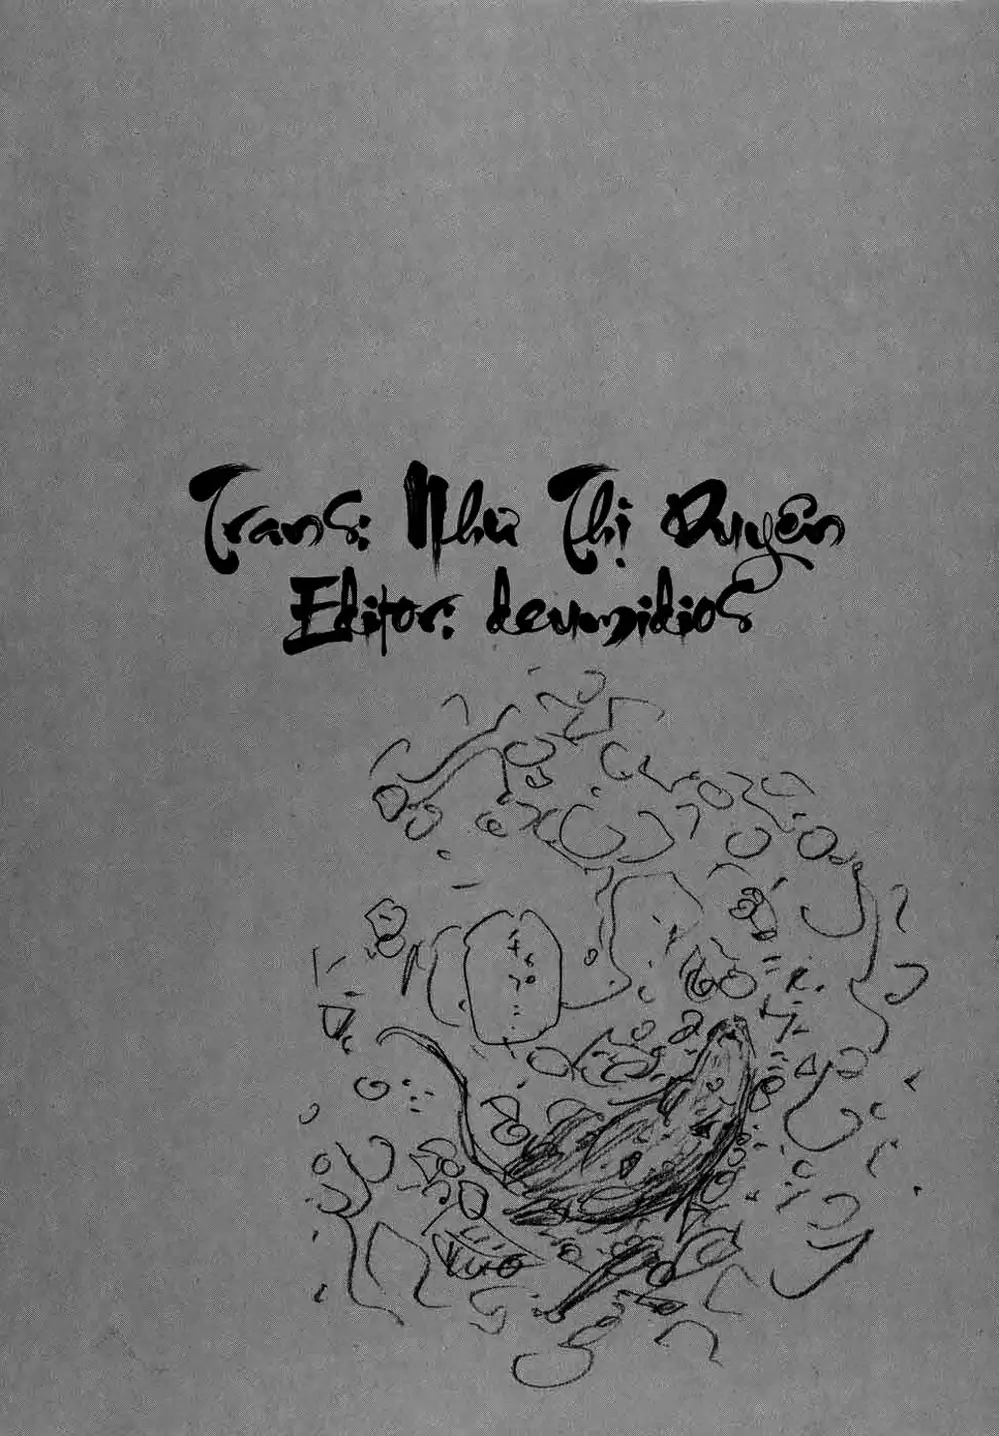 Trans: Như Thị Duyên
Editor: deumidios